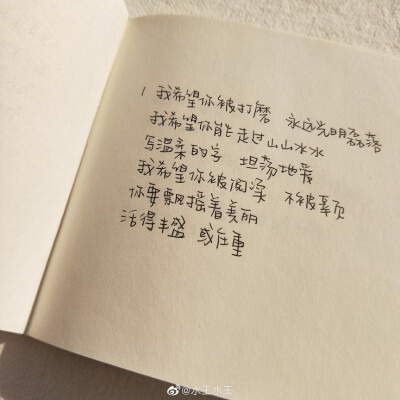 1 我希望你被打磨 永远光明磊落
我希望你能走过山山水水
写温柔的字 坦荡地爱
我希望你被 不被
你要飘摇着美丽
活得丰盛 或庄重